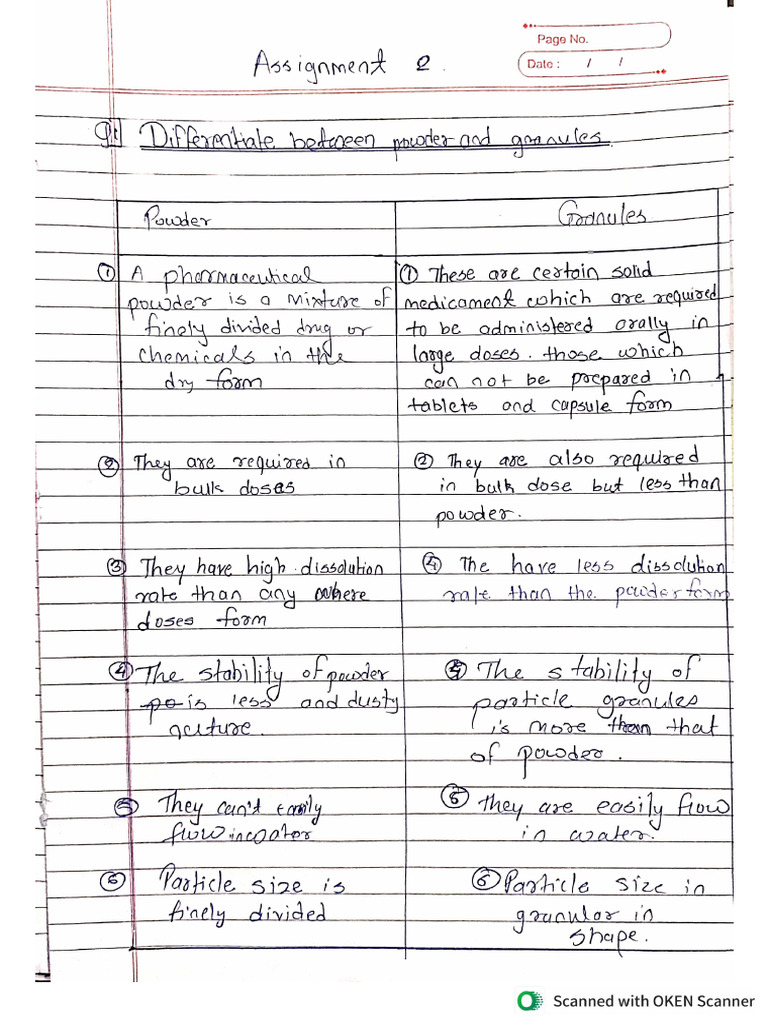 Page No.
Date : / /
Assignment 2.
Q1 Differentiate between powder and granules.
Powder
Granules
① A pharmaceutical
powder is a mixture of
finely divided drug or
chemicals in the
dry form
① These are certain solid
medicament which are required
to be administered orally in
large doses. those which
can not be prepared in
tablets and capsule form
② They are required in
bulk doses
② They are also required
in bulk dose but less than
powder.
③ They have high dissolution
rate than any where
doses form
④ The have less dissolution
rate than the powder form
④ The stability of powder
is less and dusty
nature.
The stability of
particle granules
is more than that
of powder.
⑤ They can't easily
flow in water
⑤ They are easily flow
in water.
⑥ Particle size is
finely divided
⑥ Particle size in
granular in
shape.
Scanned with OKEN Scanner